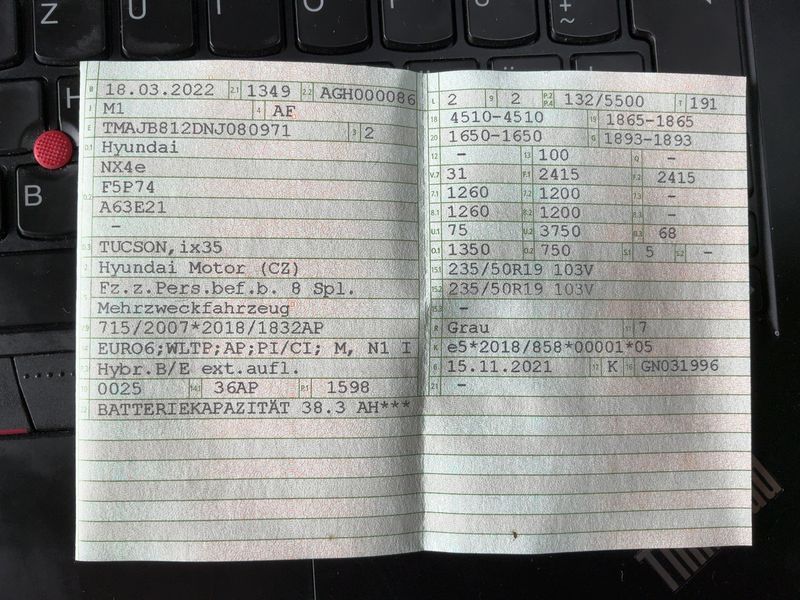 Z U I O P Ü + ~
H
B
B 18.03.2022 2.1 1349 2.2 AGH000086
J M1 4 AF
E TMAJB812DNJ080971 3 2
D.1 Hyundai
NX4e
D.2 F5P74
A63E21
-
D.3 TUCSON,ix35
2 Hyundai Motor (CZ)
5 Fz.z.Pers.bef.b. 8 Spl.
Mehrzweckfahrzeug
V.9 715/2007*2018/1832AP
14 EURO6;WLTP;AP;PI/CI; M, N1 I
P.3 Hybr.B/E ext.aufl.
10 0025 14.1 36AP P.1 1598
22 BATTERIEKAPAZITÄT 38.3 AH***
L 2 9 2 P.2 P.4 132/5500 T 191
18 4510-4510 19 1865-1865
20 1650-1650 G 1893-1893
12 - 13 100 Q -
V.7 31 F.1 2415 F.2 2415
7.1 1260 7.2 1200 7.3 -
8.1 1260 8.2 1200 8.3 -
U.1 75 U.2 3750 U.3 68
O.1 1350 O.2 750 S.1 5 S.2 -
15.1 235/50R19 103V
15.2 235/50R19 103V
15.3 -
R Grau 11 7
K e5*2018/858*00001*05
6 15.11.2021 17 K 16 GN031996
21 -